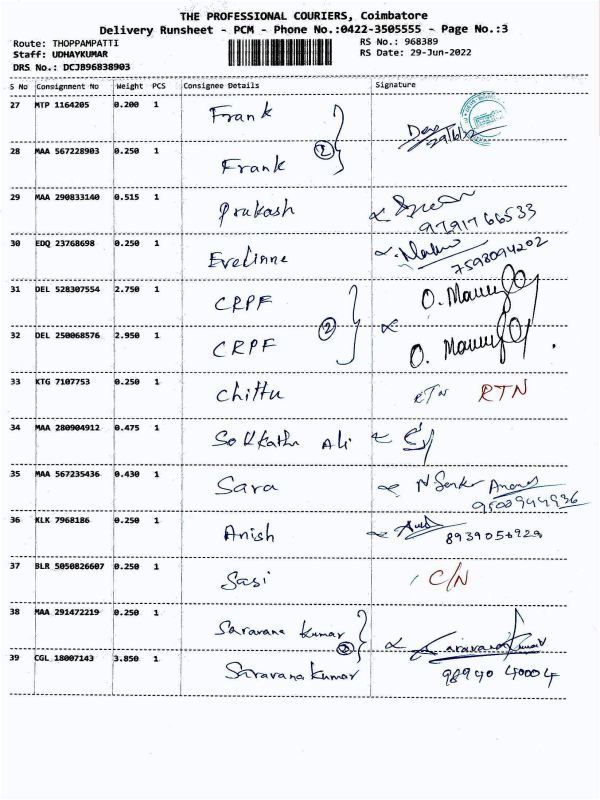 THE PROFESSIONAL COURIERS, Coimbatore
Delivery Runsheet - PCM - Phone No.:0422-3505555 - Page No.:3
Route: THOPPAMPATTI RS No.: 968389
Staff: UDHAYKUMAR RS Date: 29-Jun-2022
DRS No.: DCJB96838903
S No Consignment No Weight PCS Consignee Details Signature
27 MTP 1164205 0.200 1 Frank
28 MAA 567228903 0.250 1 Frank 2
29 MAA 290833140 0.515 1 Prakash
9791766533
30 EDQ 23768698 0.250 1 Evelinne
7598094202
31 DEL 528307554 2.750 1 CRPF
32 DEL 250068576 2.950 1 CRPF 2
33 KTG 7107753 0.250 1 Chittu RTN RTN
34 MAA 280904912 0.475 1 Sokkathu Ali
35 MAA 567235436 0.430 1 Sara Anand
9500944936
36 KLK 7968186 0.250 1 Anish
8939056929
37 BLR 5050826607 0.250 1 Sasi C/N
38 MAA 291472219 0.250 1 Saravana Kumar
39 CGL 18007143 3.850 1 Saravana Kumar 2 Saravana Kumar
98940 40004